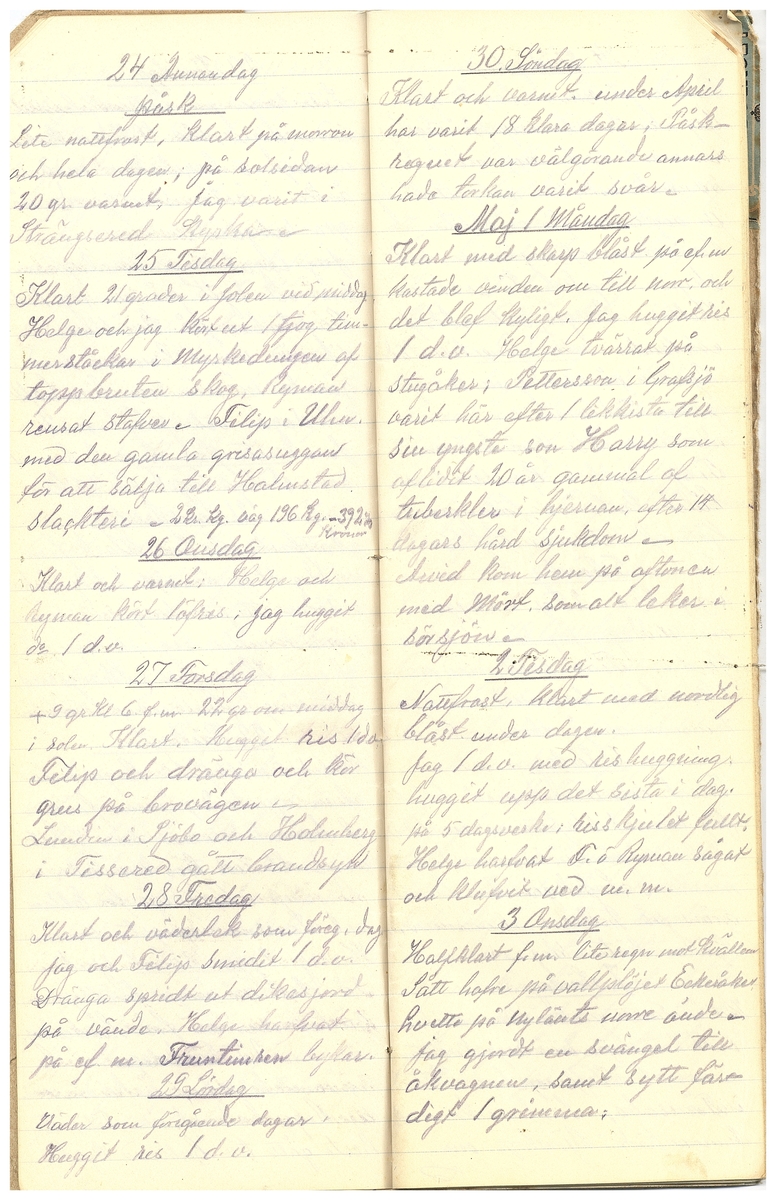 24 Annandag
påsk
Lite nattfrost, klart på morron
och hela dagen; på solsidan
20 gr. varmt; jag varit i
Strängsered Kyrka
25 Tisdag
Klart 21 grader i solen vid middag
Helge och jag kört ut 1 tjog tim-
merståckar i Myrkedungen af
toppbruten skog, Ryman
rensat stafver. Filip i Ulrn.
med den gamla grisasuggan
för att sälja till Halmstad
slackteri - 2 kr. kg. väg 196 kg. - 392
Kronor
26 Onsdag
Klart och varmt: Helge och
Ryman kört löfris; jag huggit
do 1 d.v.
27 Torsdag
+9 gr Kl 6 f.m. 22 gr om middag
i solen. Klart. Hugget ris 1 dv
Filip och dränga och kör
grus på brovägen
Lundin i Sjöbo och Holmberg
i Tissered gått brandsyn
28 Fredag
Klart och väderlek som föreg. dag
jag och Filip smidit 1 d.v.
Dränga spridt ut dikesjord
på vände. Helge harfvat
på ef m. Fruntimren bykar.
29 Lördag
Väder som föregående dagar.
Huggit ris 1 d.v.
30. Söndag
Klart och varmt. under April
har varit 18 klara dagar; Påsk-
regnet var välgörande annars
hade torkan varit svår
Maj 1 Måndag
Klart med skarp blåst på ef.m
kastade vinden om till norr. och
det blef kyligt. Jag huggit ris
1 d.v. Helge tvärrat på
stugåker; Pettersson i Grafsjö
varit här efter 1 lekkista till
sin yngste son Harry som
aflidit 20 år gammal af
tuberkler i hjernan, efter 14
dagars hård sjukdom
Arvid kom hem på aftonen
med Mört. som alt leker i
sörsjön
2 Tisdag
Nattfrost, klart med nordlig
blåst under dagen.
Jag 1 d.v. med rishuggning.
hugget upp det sista i dag.
på 5 dagsverke; risskjulet fullt.
Helge harfvat F. o Ryman sågat
och klufvit ved m.m.
3 Onsdag
Halfklart f.m. lite regn mot kvällen
Sått hafre på vallplöjet
hvette på nylänts norre ände
Jag gjordt en svängel till
åkvagnen, samt sytt fär-
digt 1 grimma;